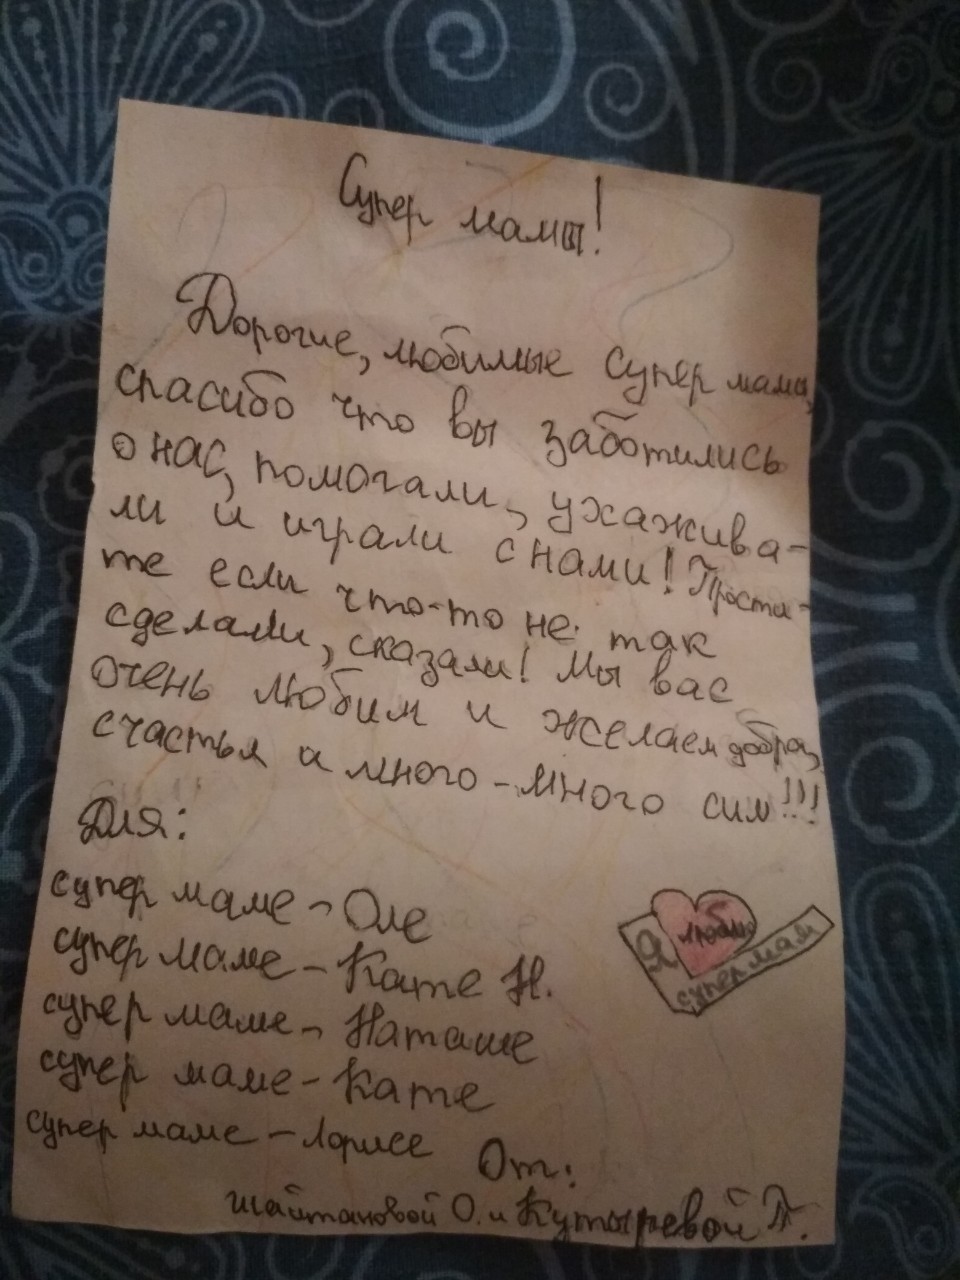 Супер мамы!
Дорогие, любимые супер мамы,
спасибо что вы заботились
о нас, помогали, ухажива-
ли и играли с нами! Прости-
те если что-то не так
сделали, сказали! Мы вас
очень любим и желаем добра,
счастья и много-много сил!!!
Для:
супер маме - Оле
супер маме - Кате Н.
супер маме - Наташе
супер маме - Кате
супер маме - Ларисе
Я люблю
супер мам
От:
Шайтановой О. и Кутыревой Т.